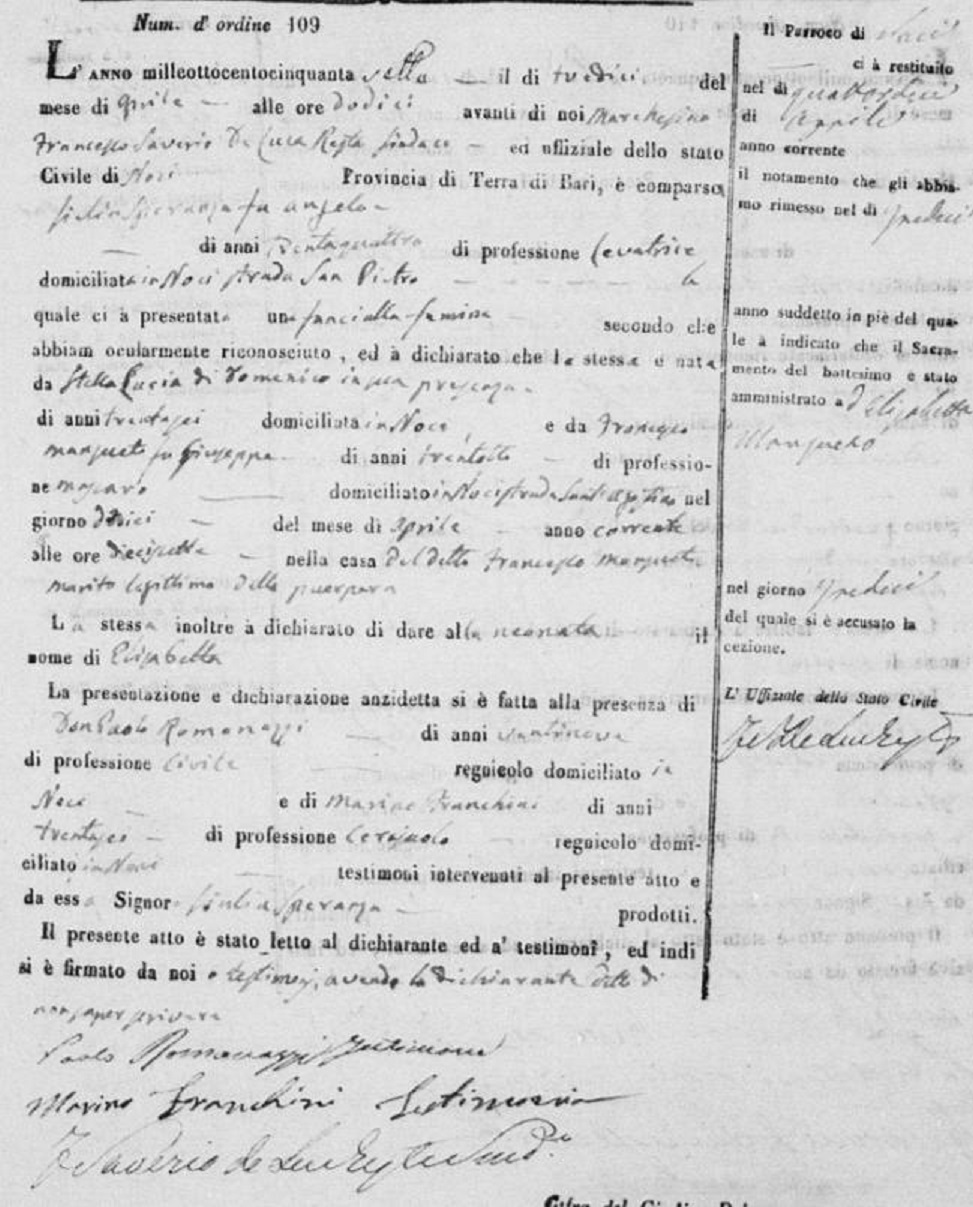 Num. d' ordine 109
L' ANNO milleottocentocinquanta sette il di tredici del
mese di Aprile alle ore dodici avanti di noi Marchesino
Francesco Saverio De Luca Resta Sindaco ed uffiziale dello stato
Civile di Noci Provincia di Terra di Bari, è comparsa
Speranza fu Angelo
di anni di professione Levatrice
domiciliata in Noci strada San Pietro la
quale ci à presentata una fanciulla femina secondo che
abbiam ocularmente riconosciuto, ed à dichiarato che la stessa è nata
da Stella Lucia di Domenico
di anni trentasei domiciliata in Noci e da Francesco
fu Giuseppe di anni trentotto di professio-
ne domiciliato in Noci strada nel
giorno dodici del mese di Aprile anno corrente
alle ore diecisette nella casa del detto Francesco
marito legittimo della puerpera
La stessa inoltre à dichiarato di dare alla neonata il
nome di Elisabetta
La presentazione e dichiarazione anzidetta si è fatta alla presenza di
Don Paolo Romanazzi di anni ventinove
di professione Civile regnicolo domiciliato in
Noci e di Marino Franchini di anni
trentasei di professione Cerajuolo regnicolo domi-
ciliato in Noci testimoni intervenuti al presente atto e
da essa Signora Speranza prodotti.
Il presente atto è stato letto al dichiarante ed a' testimonî, ed indi
si è firmato da noi e testimonj, avendo la dichiarante detto di
non saper scrivere
Paolo Romanazzi testimone
Marino Franchini testimonio
F Saverio de Luca Resta Sind.o
Il Parroco di Noci
ci à restituito
nel di quattordici
di Aprile
anno corrente
il notamento che gli abbia-
mo rimesso nel di tredici
anno suddetto in piè del qua-
le à indicato che il Sacra-
mento del battesimo è stato
amministrato a Elisabetta
nel giorno tredici
del quale si è accusato la
cezione.
L' Uffiziale dello Stato Civile